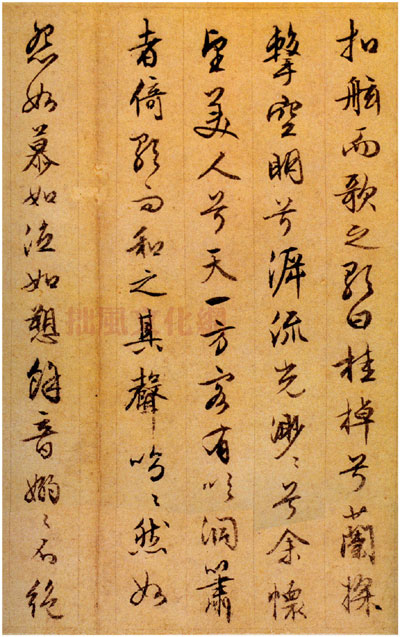 扣舷而歌之歌曰桂棹兮蘭槳
擊空明兮泝流光渺〻兮余懷
望美人兮天一方客有吹洞簫
者倚歌而和之其聲嗚〻然如
怨如慕如泣如愬餘音嫋〻不絕
拙風文化網